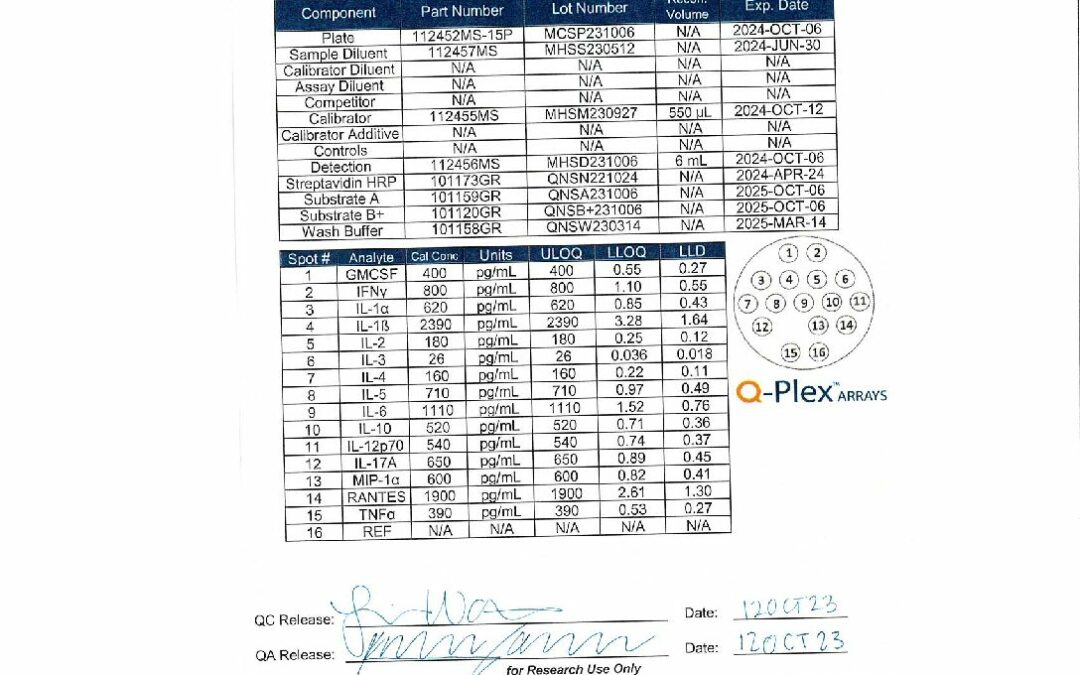 Component Part Number Lot Number Recon. Volume Exp. Date
Plate 112452MS-15P MCSP231006 N/A 2024-OCT-06
Sample Diluent 112457MS MHSS230512 N/A 2024-JUN-30
Calibrator Diluent N/A N/A N/A N/A
Assay Diluent N/A N/A N/A N/A
Competitor N/A N/A N/A N/A
Calibrator 112455MS MHSM230927 550 µL 2024-OCT-12
Calibrator Additive N/A N/A N/A N/A
Controls N/A N/A N/A N/A
Detection 112456MS MHSD231006 6 mL 2024-OCT-06
Streptavidin HRP 101173GR QNSN221024 N/A 2024-APR-24
Substrate A 101159GR QNSA231006 N/A 2025-OCT-06
Substrate B+ 101120GR QNSB+231006 N/A 2025-OCT-06
Wash Buffer 101158GR QNSW230314 N/A 2025-MAR-14
Spot # Analyte Cal Conc Units ULOQ LLOQ LLD
1 GMCSF 400 pg/mL 400 0.55 0.27
2 IFNγ 800 pg/mL 800 1.10 0.55
3 IL-1α 620 pg/mL 620 0.85 0.43
4 IL-1ß 2390 pg/mL 2390 3.28 1.64
5 IL-2 180 pg/mL 180 0.25 0.12
6 IL-3 26 pg/mL 26 0.036 0.018
7 IL-4 160 pg/mL 160 0.22 0.11
8 IL-5 710 pg/mL 710 0.97 0.49
9 IL-6 1110 pg/mL 1110 1.52 0.76
10 IL-10 520 pg/mL 520 0.71 0.36
11 IL-12p70 540 pg/mL 540 0.74 0.37
12 IL-17A 650 pg/mL 650 0.89 0.45
13 MIP-1α 600 pg/mL 600 0.82 0.41
14 RANTES 1900 pg/mL 1900 2.61 1.30
15 TNFα 390 pg/mL 390 0.53 0.27
16 REF N/A N/A N/A N/A N/A
1 2
3 4 5 6
7 8 9 10 11
12 13 14
15 16
Q-Plex™ ARRAYS
QC Release: Date: 12OCT23
QA Release: Date: 12OCT23
for Research Use Only